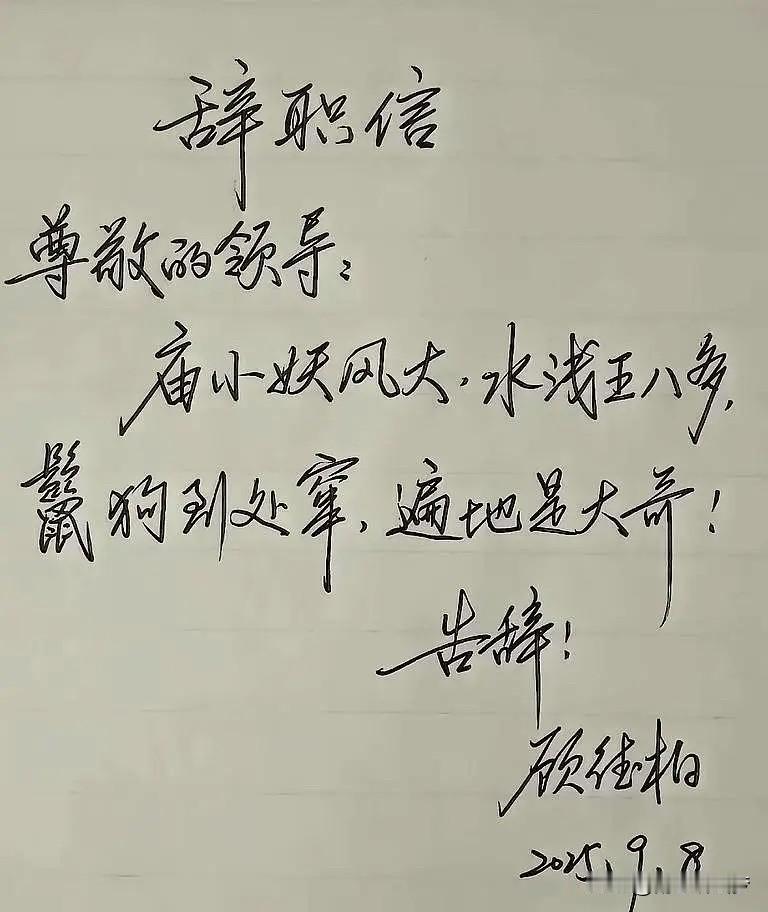 辞职信
尊敬的领导:
庙小妖风大,水浅王八多,
鬣狗到处窜,遍地是大哥!
告辞!
顾德柏
2025.9.8